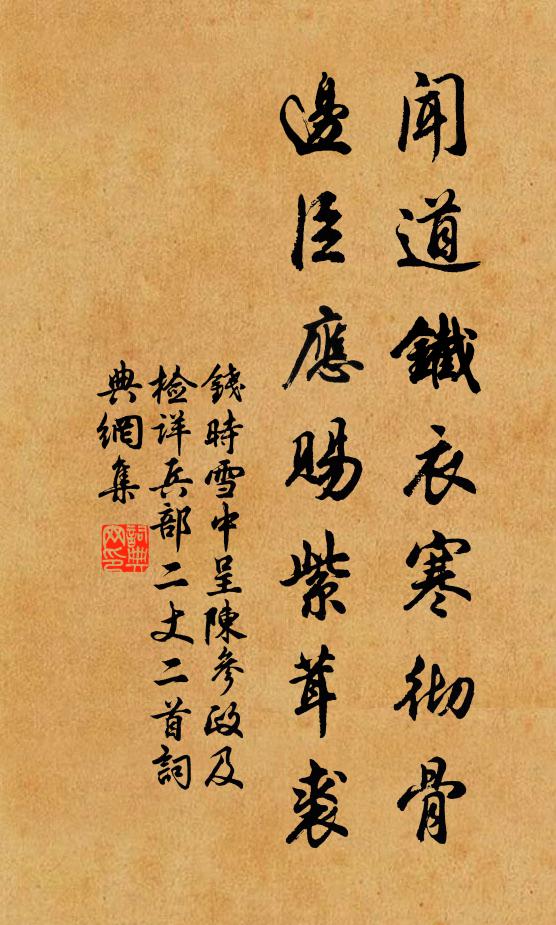 聞道鐵衣寒徹骨
邊臣應賜紫茸裘
錢時雪中呈陳參政及
檢詳兵部二丈二首詞
典網集
詞典
网印